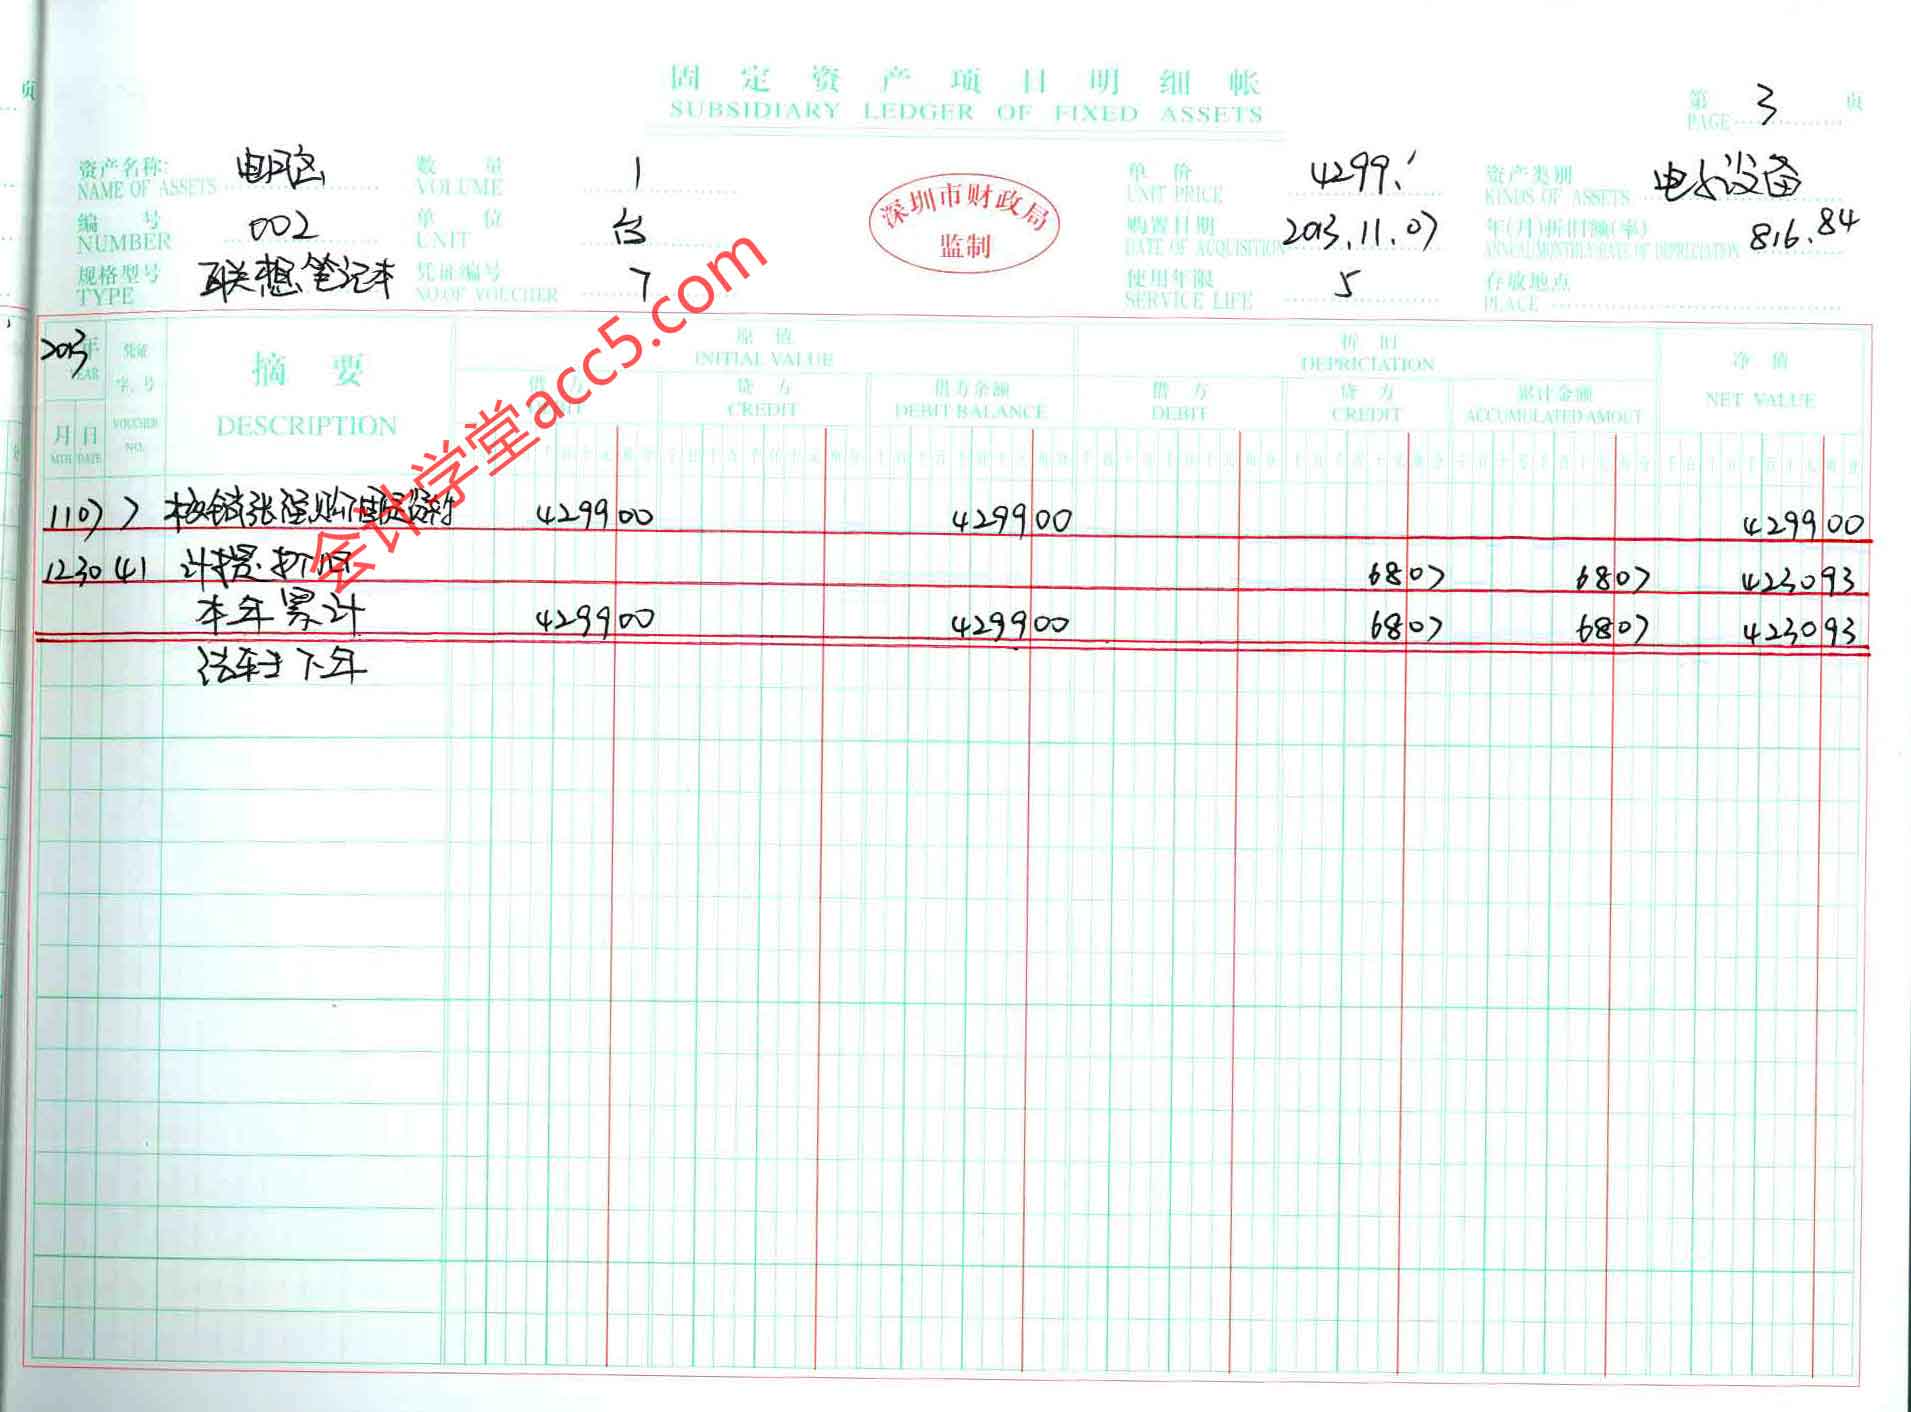 页
固定资产项目明细帐
SUBSIDIARY LEDGER OF FIXED ASSETS
第 3 页
PAGE
资产名称: 电脑 数量 1 单价 4299.- 资产类别 电子设备
NAME OF ASSETS VOLUME UNIT PRICE KINDS OF ASSETS
编号 002 单位 台 购置日期 2013.11.07 年(月)折旧额(率) 816.84
NUMBER UNIT DATE OF ACQUISITION ANNUAL(MONTHLY)RATE OF DEPRECIATION
规格型号 联想笔记本 凭证编号 7 使用年限 5 存放地点
TYPE NO.OF VOUCHER SERVICE LIFE PLACE
深圳市财政局
监制
2013年 凭证 摘要 原值 折旧 净值
YEAR 字、号 INITIAL VALUE DEPRICIATION NET VALUE
借方 贷方 借方余额 借方 贷方 累计金额
CREDIT DEBIT BALANCE DEBIT CREDIT ACCUMULATED AMOUT
月 日 VOUCHER DESCRIPTION
MTH DATE NO.
11 07 7 核销张强购 4299 00 4299 00 4299 00
12 30 41 计提折旧 68 07 68 07 4230 93
本年累计 4299 00 4299 00 68 07 68 07 4230 93
结转下年
会计学堂acc5.com